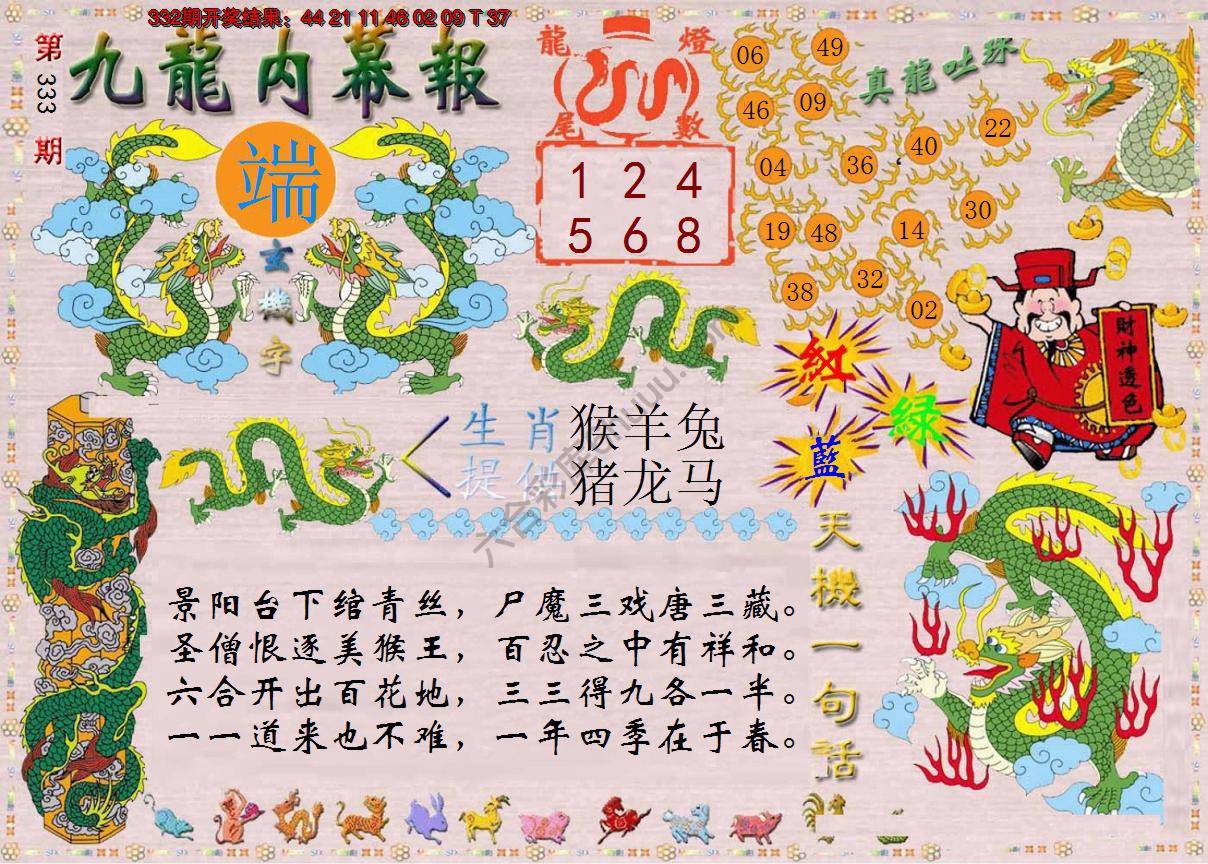 332期开奖结果：44 21 11 46 02 09 T 37
第333期
九龍内幕報
端
玄機字
龍燈尾數
1 2 4
5 6 8
真龍吐珠
06
49
46
09
22
40
04
36
30
19
48
14
38
32
02
財神透色
紅
綠
藍
生肖 猴羊兔
提供 猪龙马
天機一句話
景阳台下绾青丝，尸魔三戏唐三藏。
圣僧恨逐美猴王，百忍之中有祥和。
六合开出百花地，三三得九各一半。
一一道来也不难，一年四季在于春。